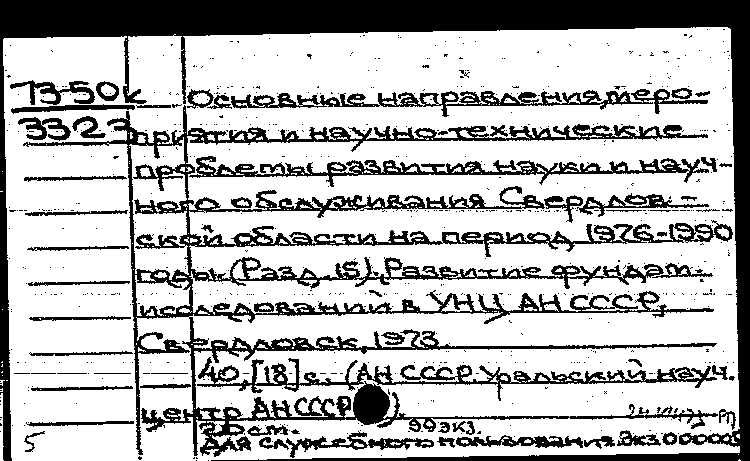 73-50к Основные направления, меро-
3323 приятия и научно-технические
проблемы развития науки и науч-
ного обслуживания Свердлов. -
ской области на период 1976-1990
годы. (Разд. 15). Развитие фундам.
исследований в УНЦ АН СССР.
Свердловск, 1973.
40, [18] с. (АН СССР. Уральский науч.
центр АН СССР).
20 см. 99 экз.
5 Для служебного пользования. Экз.